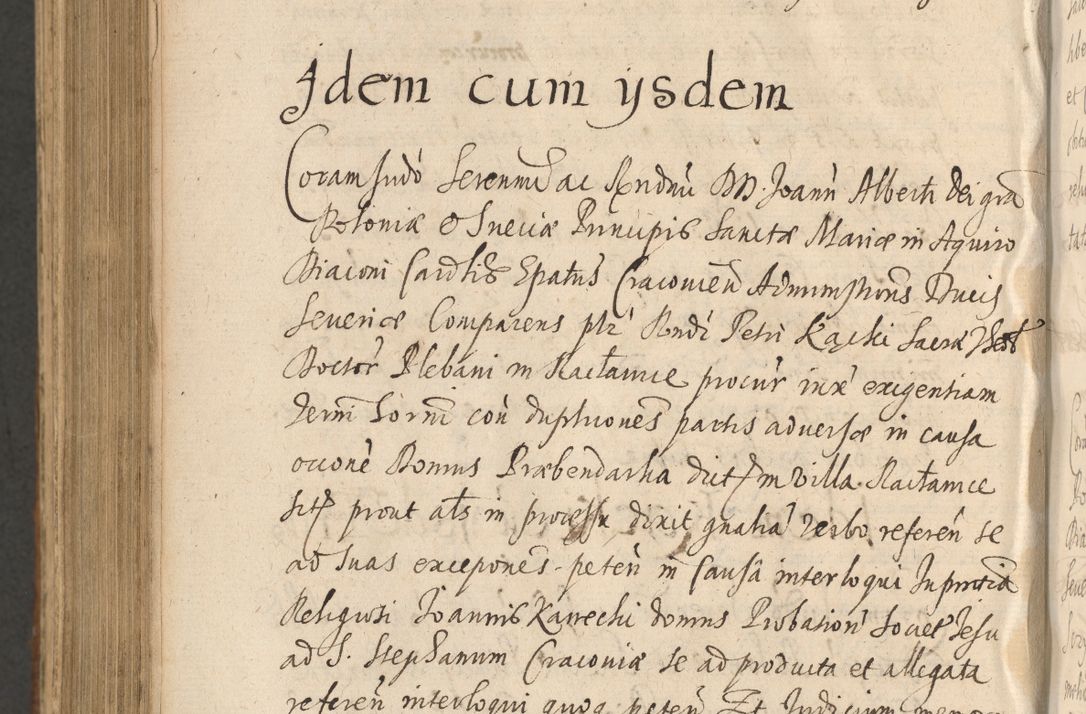 Idem cum ysdem
Coram Judō Serenmō ac Rndmū DD. Joanń Alberti Dei grã
Poloniæ & Sueciæ Principis Sanctæ Mariæ in Aquiro
Diaconi Cardlis Epatus Cracovień Administrōnis Ducis
Severiæ Comparens plr̃ Rndi Petri Kącki Sacræ Theol
Doctoř Plebani in Racłavice procuř inxẽ exigentiam
Termi horni coñ duplicioneš partis adversæ in causa
oc̃cone Domus Præbendarlia dict in villa Racłavice
sit prout alš in processu dixit gnalia verbo refereñ se
ad suas excepones peteñ in Causa interloqui In pñtia
Religiosi Joannis Karnecki domus Probationi Societ Jesu
ad S. Stephanum Cracoviæ se ad producta et allegata
refereñ interloqui quoq peteñ Et Judicium